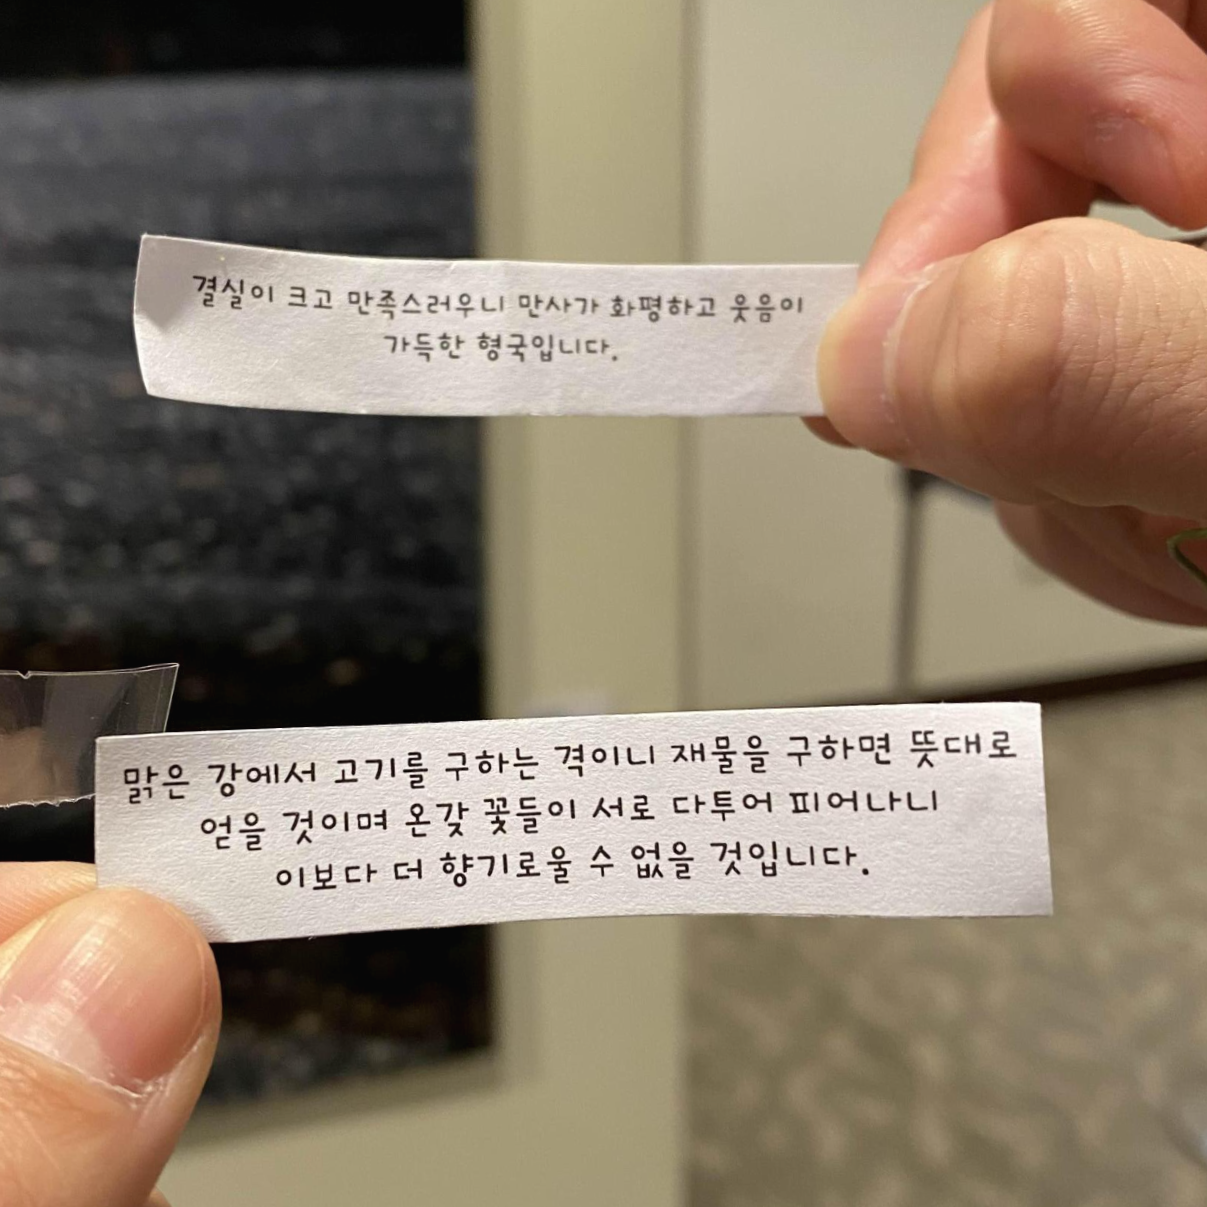 결실이 크고 만족스러우니 만사가 화평하고 웃음이
가득한 형국입니다.
맑은 강에서 고기를 구하는 격이니 재물을 구하면 뜻대로
얻을 것이며 온갖 꽃들이 서로 다투어 피어나니
이보다 더 향기로울 수 없을 것입니다.